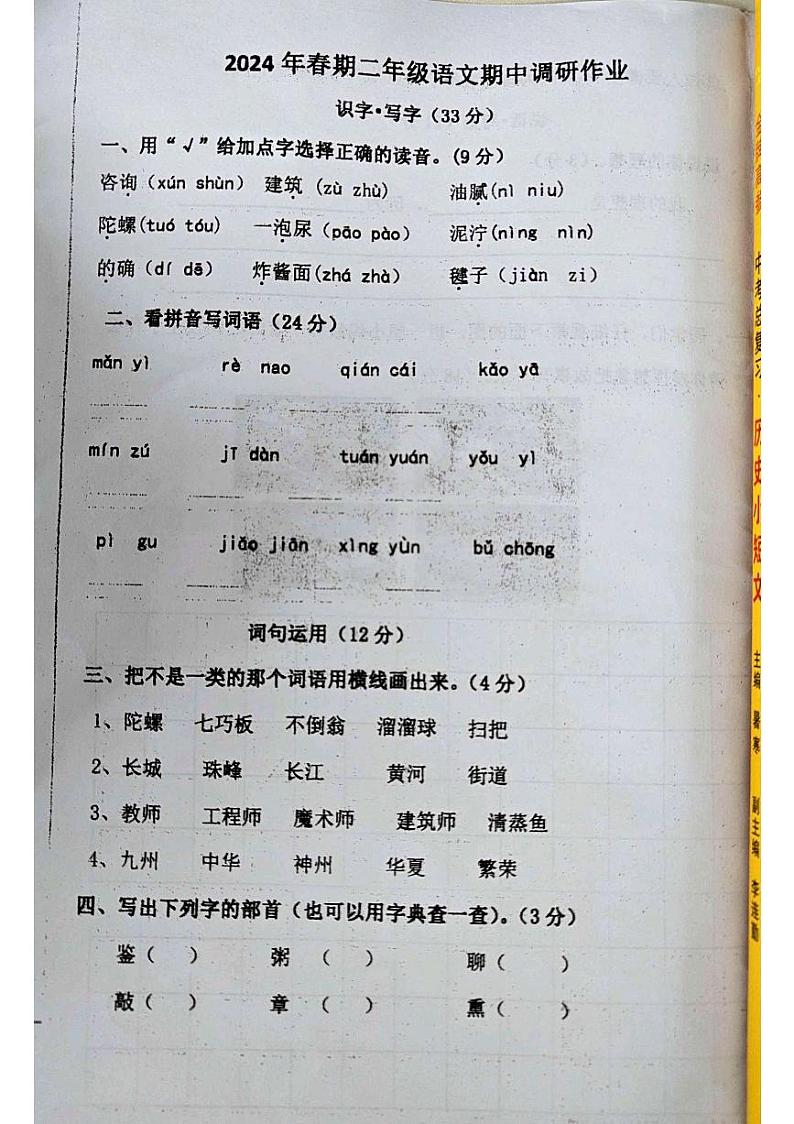 2024年春期二年级语文期中调研作业
识字•写字(33分)
一、用“√”给加点字选择正确的读音。(9分)
咨询(xún shùn) 建筑(zù zhù) 油腻(nì niu)
陀螺(tuó tóu) 一泡尿(pāo pào) 泥泞(nìng nìn)
的确(dí dē) 炸酱面(zhá zhà) 毽子(jiàn zi)
二、看拼音写词语(24分)
mǎn yì rè nao qián cái kǎo yā
mín zú jī dàn tuán yuán yǒu yì
pì gu jiǎo jiān xìng yùn bǔ chōng
词句运用(12分)
三、把不是一类的那个词语用横线画出来。(4分)
1、陀螺 七巧板 不倒翁 溜溜球 扫把
2、长城 珠峰 长江 黄河 街道
3、教师 工程师 魔术师 建筑师 清蒸鱼
4、九州 中华 神州 华夏 繁荣
四、写出下列字的部首(也可以用字典查一查)。(3分)
鉴( ) 粥( ) 聊( )
敲( ) 章( ) 熏( )
中考总复习·历史小短文
主编 暑寒 副主编